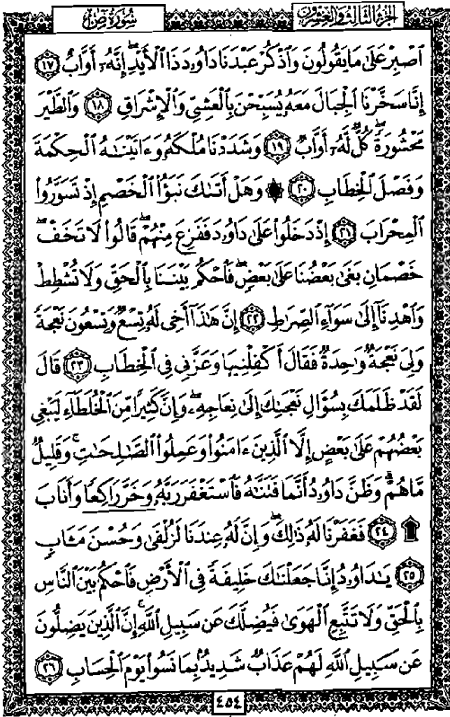 الجزء الثالث والعشرون سورة ص
ٱصۡبِرۡ عَلَىٰ مَا يَقُولُونَ وَٱذۡكُرۡ عَبۡدَنَا دَاوُۥدَ ذَا ٱلۡأَيۡدِۖ إِنَّهُۥٓ أَوَّابٌ ١٧
إِنَّا سَخَّرۡنَا ٱلۡجِبَالَ مَعَهُۥ يُسَبِّحۡنَ بِٱلۡعَشِيِّ وَٱلۡإِشۡرَاقِ ١٨ وَٱلطَّيۡرَ
مَحۡشُورَةٗۖ كُلّٞ لَّهُۥٓ أَوَّابٞ ١٩ وَشَدَدۡنَا مُلۡكَهُۥ وَءَاتَيۡنَٰهُ ٱلۡحِكۡمَةَ
وَفَصۡلَ ٱلۡخِطَابِ ٢٠ ۞ وَهَلۡ أَتَىٰكَ نَبَؤُاْ ٱلۡخَصۡمِ إِذۡ تَسَوَّرُواْ
ٱلۡمِحۡرَابَ ٢١ إِذۡ دَخَلُواْ عَلَىٰ دَاوُۥدَ فَفَزِعَ مِنۡهُمۡۖ قَالُواْ لَا تَخَفۡۖ
خَصۡمَانِ بَغَىٰ بَعۡضُنَا عَلَىٰ بَعۡضٖ فَٱحۡكُم بَيۡنَنَا بِٱلۡحَقِّ وَلَا تُشۡطِطۡ
وَٱهۡدِنَآ إِلَىٰ سَوَآءِ ٱلصِّرَٰطِ ٢٢ إِنَّ هَٰذَآ أَخِي لَهُۥ تِسۡعٞ وَتِسۡعُونَ نَعۡجَةٗ
وَلِيَ نَعۡجَةٞ وَٰحِدَةٞ فَقَالَ أَكۡفِلۡنِيهَا وَعَزَّنِي فِي ٱلۡخِطَابِ ٢٣ قَالَ
لَقَدۡ ظَلَمَكَ بِسُؤَالِ نَعۡجَتِكَ إِلَىٰ نِعَاجِهِۦۖ وَإِنَّ كَثِيرٗا مِّنَ ٱلۡخُلَطَآءِ لَيَبۡغِي
بَعۡضُهُمۡ عَلَىٰ بَعۡضٍ إِلَّا ٱلَّذِينَ ءَامَنُواْ وَعَمِلُواْ ٱلصَّٰلِحَٰتِ وَقَلِيلٞ
مَّا هُمۡۗ وَظَنَّ دَاوُۥدُ أَنَّمَا فَتَنَّٰهُ فَٱسۡتَغۡفَرَ رَبَّهُۥ وَخَرَّۤ رَاكِعٗاۤ وَأَنَابَ
۩ ٢٤ فَغَفَرۡنَا لَهُۥ ذَٰلِكَۖ وَإِنَّ لَهُۥ عِندَنَا لَزُلۡفَىٰ وَحُسۡنَ مَـَٔابٖ
٢٥ يَٰدَاوُۥدُ إِنَّا جَعَلۡنَٰكَ خَلِيفَةٗ فِي ٱلۡأَرۡضِ فَٱحۡكُم بَيۡنَ ٱلنَّاسِ
بِٱلۡحَقِّ وَلَا تَتَّبِعِ ٱلۡهَوَىٰ فَيُضِلَّكَ عَن سَبِيلِ ٱللَّهِۚ إِنَّ ٱلَّذِينَ يَضِلُّونَ
عَن سَبِيلِ ٱللَّهِ لَهُمۡ عَذَابٞ شَدِيدُۢ بِمَا نَسُواْ يَوۡمَ ٱلۡحِسَابِ ٢٦
٤٥٤